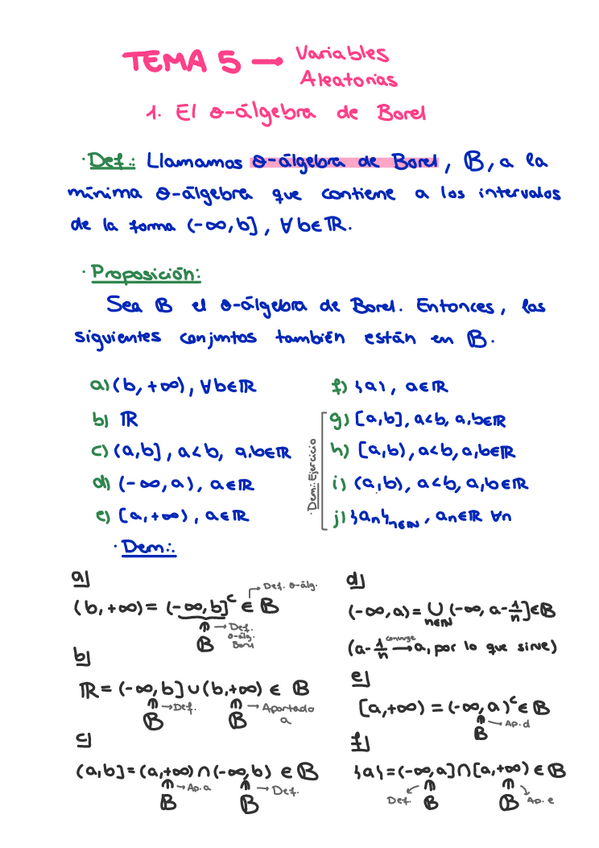 TEMA 5 → Variables
Aleatorias
1. El σ-álgebra de Borel
· Def.: Llamamos σ-álgebra de Borel, B, a la
mínima σ-álgebra que contiene a los intervalos
de la forma (-∞,b], ∀b∈ℝ.
· Proposición:
Sea B el σ-álgebra de Borel. Entonces, los
siguientes conjuntos también están en B.
a) (b,+∞), ∀b∈ℝ
b) ℝ
c) (a,b], a<b, a,b∈ℝ
d) (-∞,a), a∈ℝ
e) [a,+∞), a∈ℝ
f) {a}, a∈ℝ
· Dem.: Ejercicio
g) [a,b], a<b, a,b∈ℝ
h) [a,b), a<b, a,b∈ℝ
i) (a,b), a<b, a,b∈ℝ
j) {aₙ}ₙ∈ℕ, aₙ∈ℝ ∀n
· Dem.:
a]
→ Def. σ-álg.
(b,+∞) = (-∞,b]ᶜ ∈ B
⋒ → Def.
σ-álg.
B Borel
b]
ℝ = (-∞,b] ∪ (b,+∞) ∈ B
⋒ → Def. ⋒ → Apartado
B B a
c]
(a,b] = (a,+∞) ∩ (-∞,b) ∈ B
⋒ → Ap. a ⋒ → Def.
B B
d]
(-∞,a) = ∪ (-∞, a-1/n] ∈ B
n∈ℕ
(a-1/n converge → a, por lo que sirve)
e]
[a,+∞) = (-∞,a)ᶜ ∈ B
⋒ → Ap. d
B
f]
{a} = (-∞,a] ∩ [a,+∞) ∈ B
⋒ ⋒
Def B B Ap. e